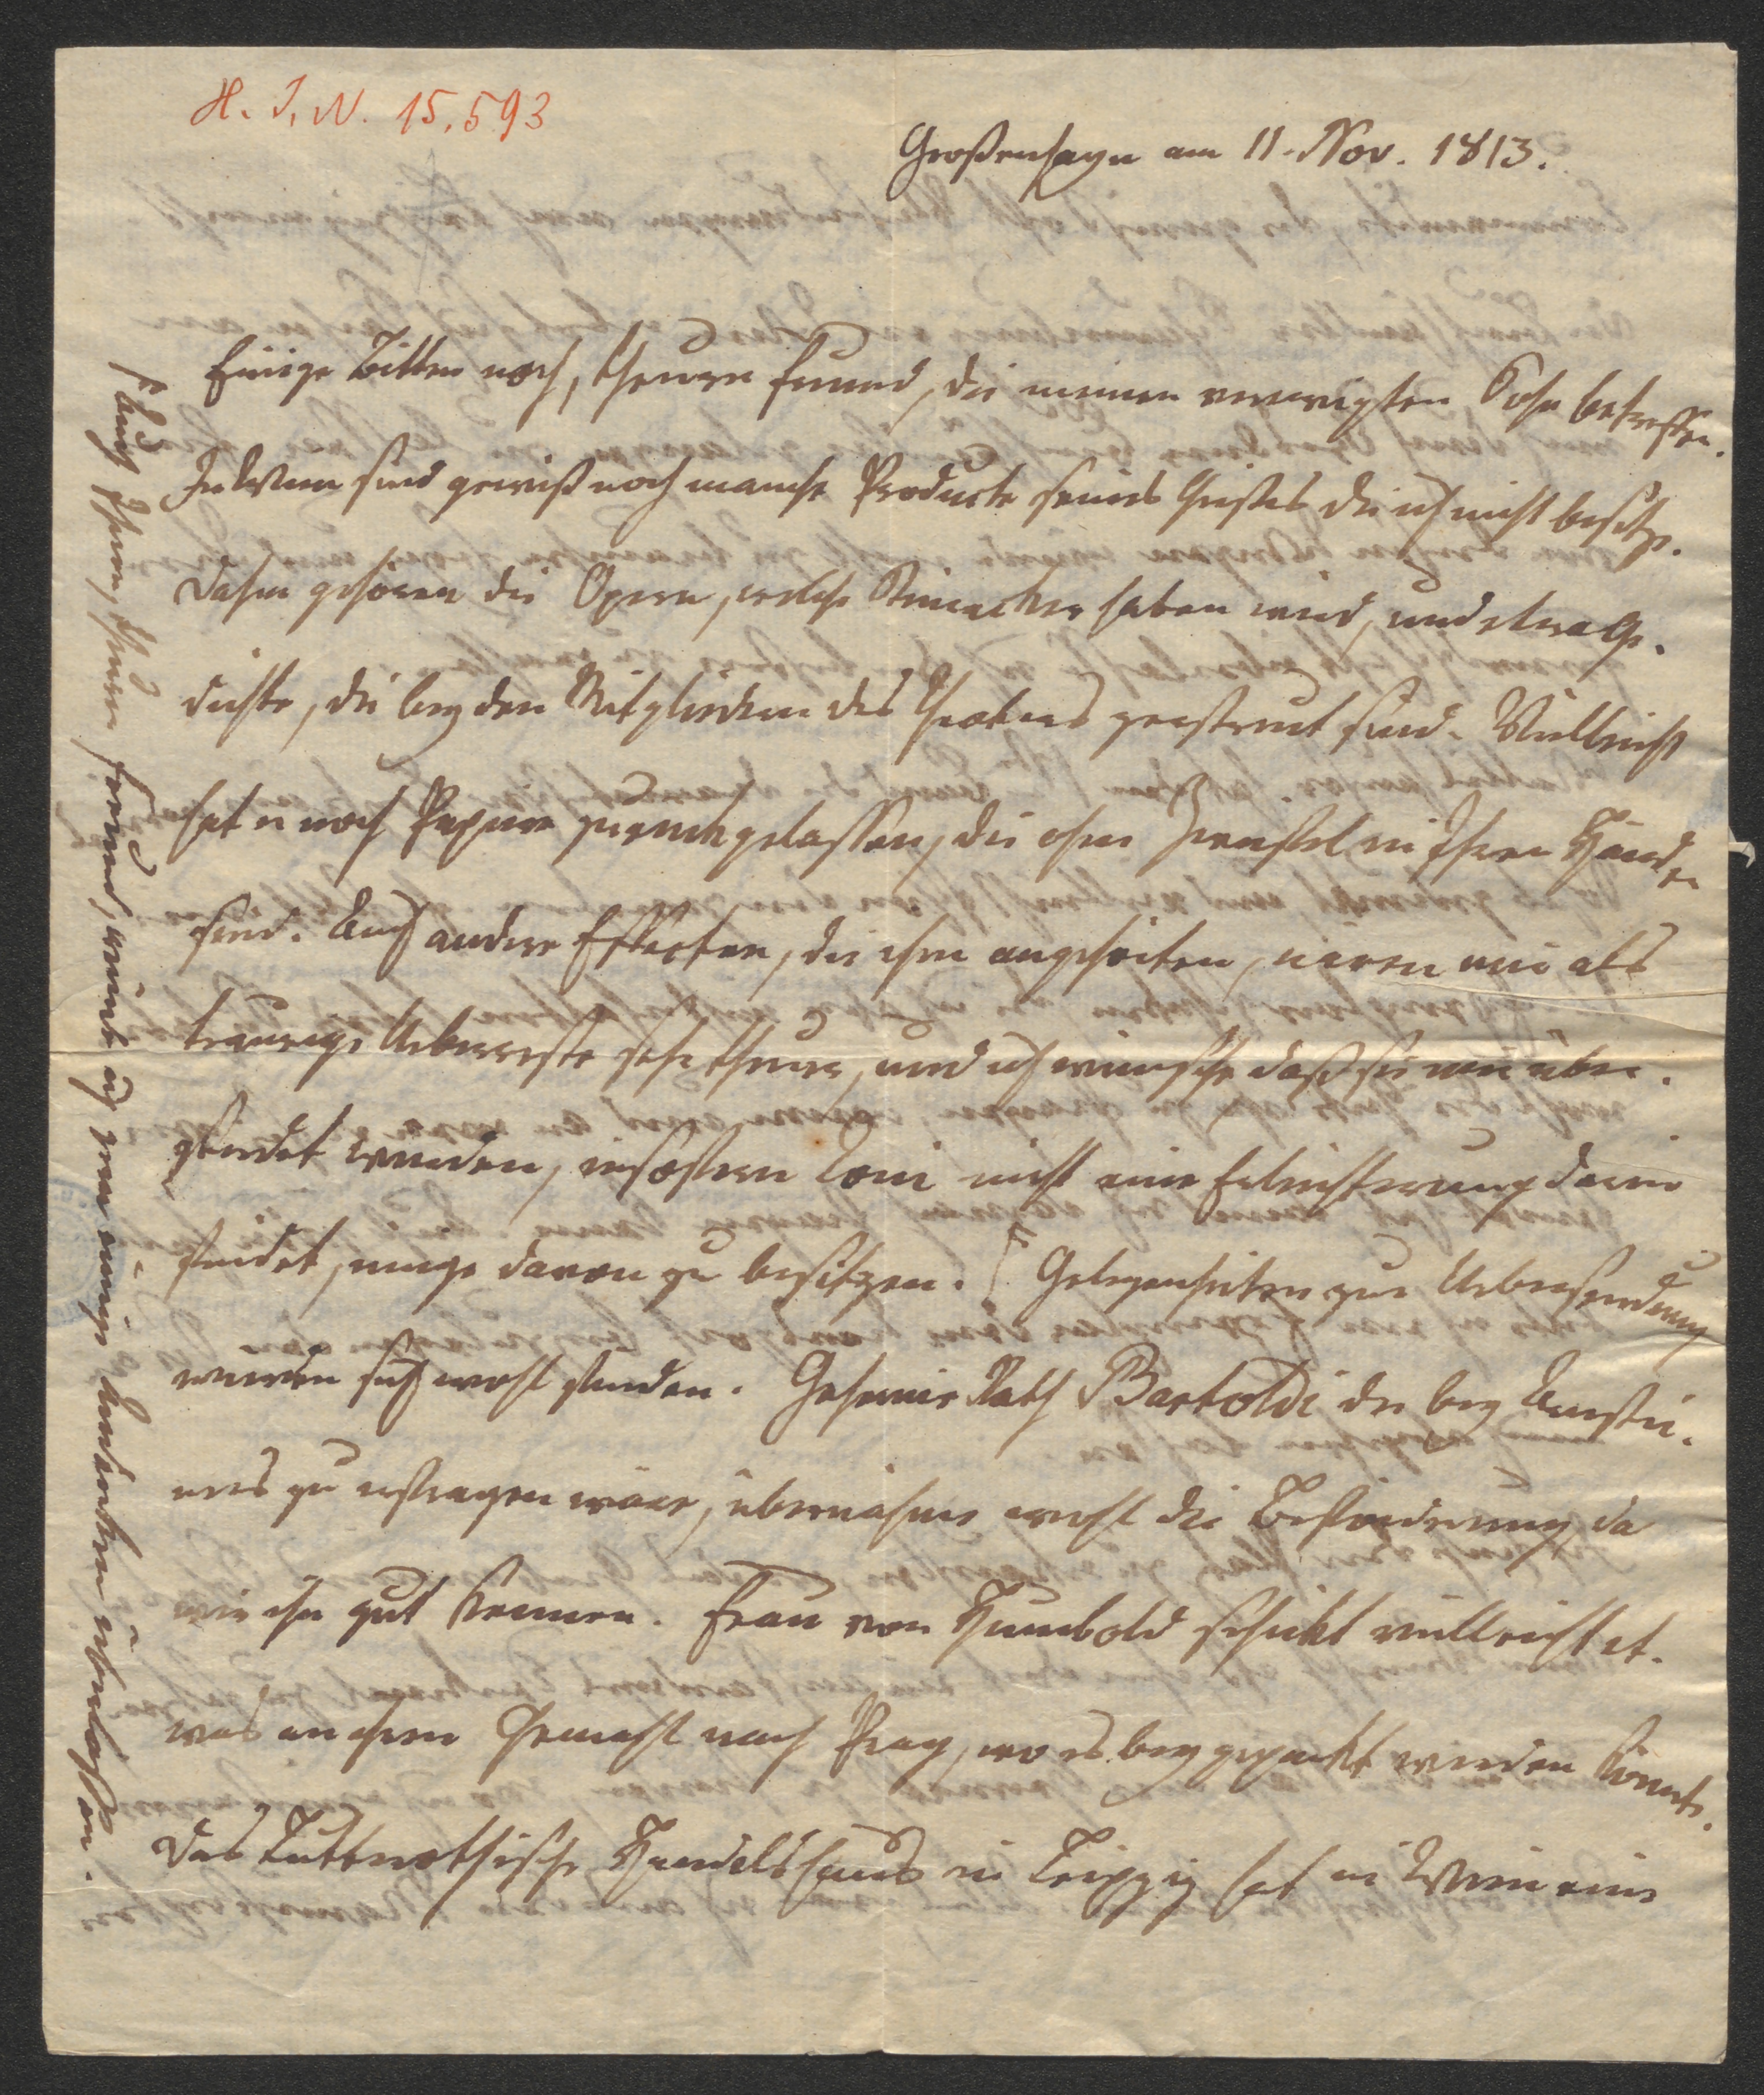 H. I. N. 15.593
Großenhayn am 11. Nov. 1813.
Einige Bitten noch, theurer Freund, die meinen verewigten Sohn betreffen.
In Wien sind gewiß noch manche Producte seines Geistes die ich nicht besitze.
Dahin gehören die Opern, welche Riemacker haben wird, und etwa Ge-
dichte, die bey den Mitgliedern des Theaters zerstreut sind. Vielleicht
hat er noch Papiere zurückgelassen, die ohne Zweifel in Ihren Händen
sind. Auch andere Effecten, die ihm angehörten, wären mir als
traurige Ueberreste sehr theuer, und ich wünschte daß sie mir über-
sendet würden, insofern Toni nicht eine Erleichterung darin
findet, einige davon zu besitzen. Gelegenheiten zur Uebersendung
werden sich wohl finden. Geheime Rath Bartoldi der bey Arnstei-
ners zu erfragen wäre, übernähme wohl die Beförderung, da
wir ihn gut kennen. Frau von Humbold schickt vielleicht et-
was an ihren Gemahl nach Prag, wo es beygepackt werden könnte.
Das Handelshaus in Leipzig hat in Wien eine
Auch Ihnen, theurer Freund, würde ich gern einige Andenken überlassen.